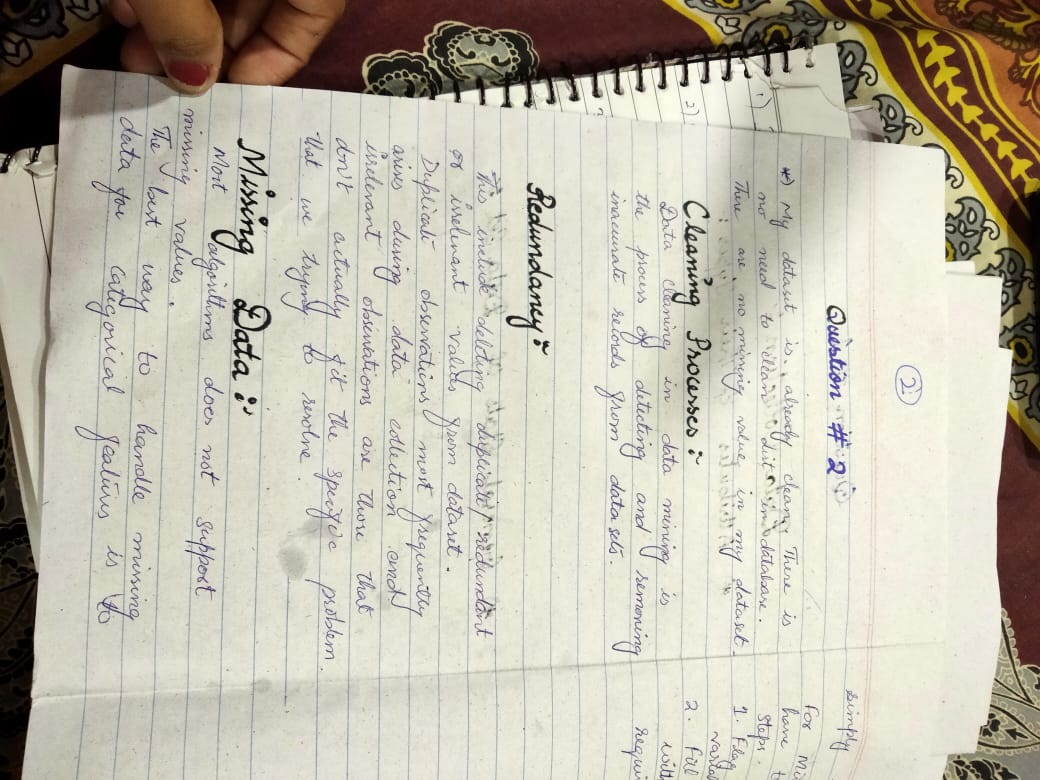 (2)
Question # 2
*) My dataset is already clean. There is
no need to clean dirt in database.
There are no missing values in my dataset.
Cleaning Processes:
Data cleaning in data mining is
the process of detecting and removing
inacurate records from datasets.
Redundancy:
This include deleting duplicate, redundant
or irrelinant values from dataset.
Duplicate observations most frequently
arises during data collection and
irrelevant observations are those that
don't actually fit the specific problem
that we trying to resolve.
Missing Data:
Most algorithms does not support
missing values.
The best way to handle missing
data for categorical features is to
simply
For Mis
have t
Steps.
1. Flag
variab
2. Fill
with
requi
1)
2)